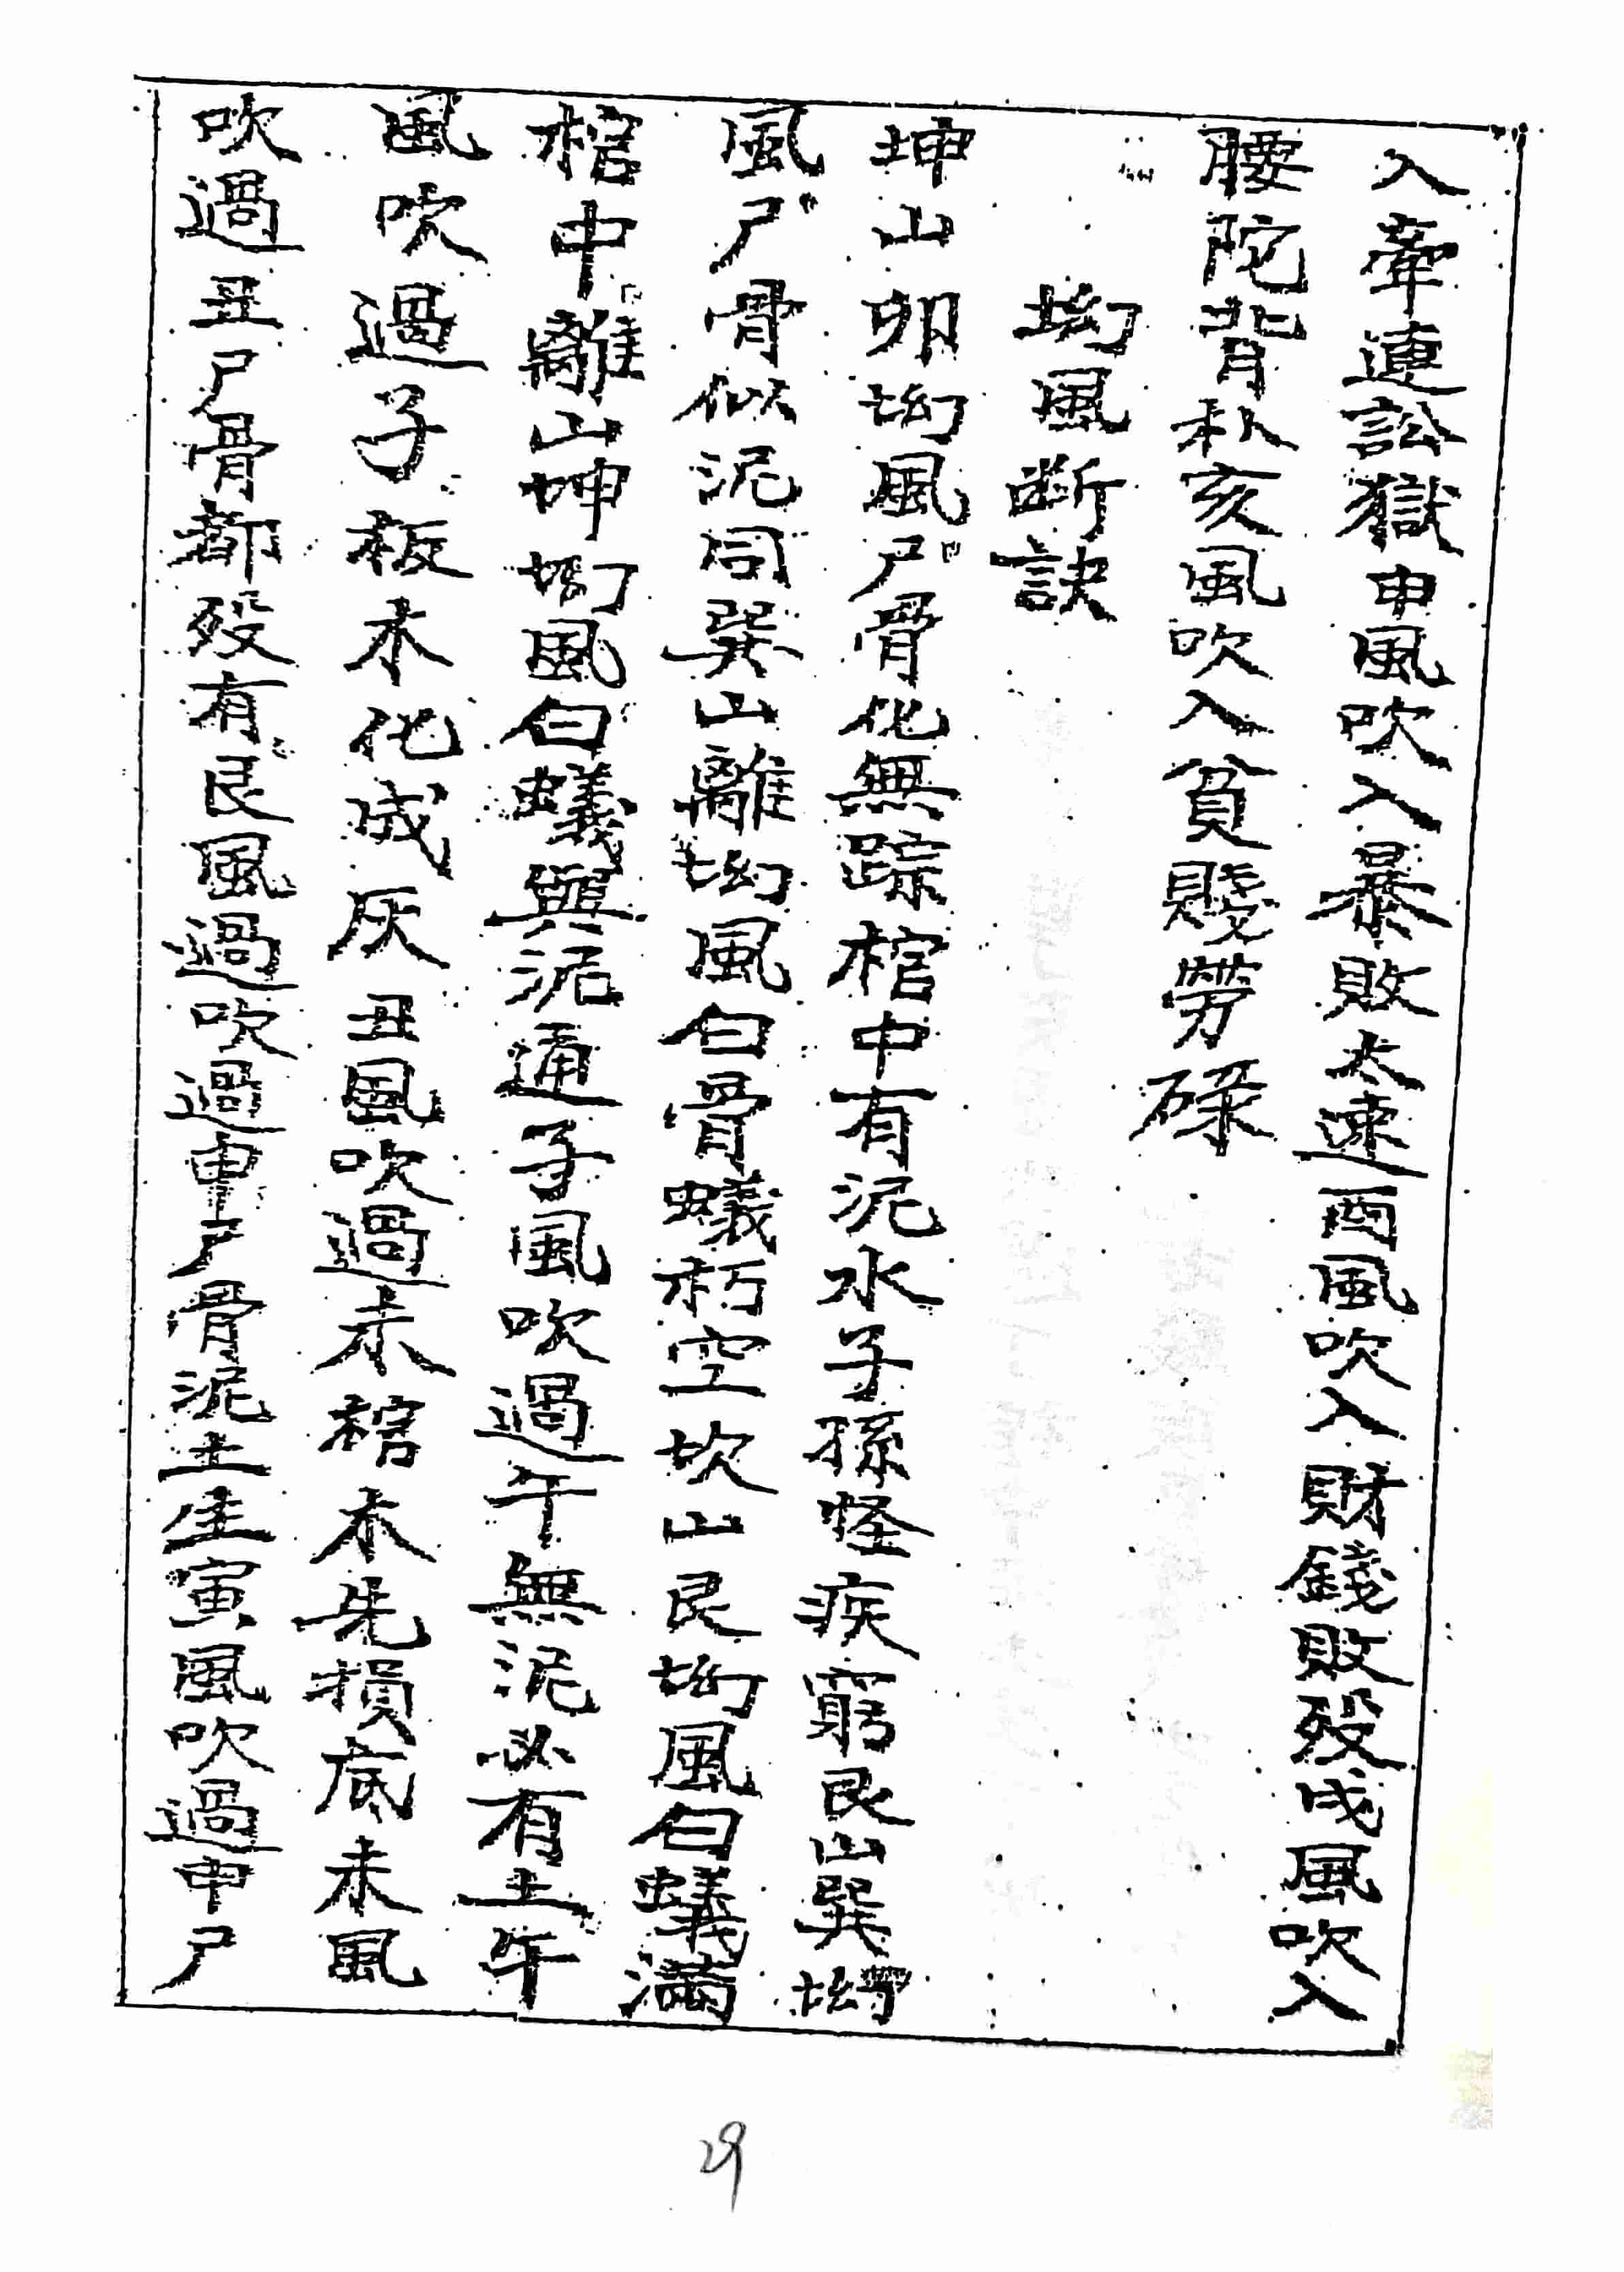 入牽連訟獄申風吹入暴敗太速酉風吹入財錢敗歿戌風吹入
腰陀背朴亥風吹入貧賤勞碌
坳風斷訣
坤山卯坳風尸骨化無踪棺中有泥水子孫怪疾窮艮山巽坳
風尸骨似泥同巽山離坳風白骨蟻朽空坎山艮坳風白蟻滿
棺中離山坤坳風白蟻與泥通子風吹過午無泥必有土午
風吹過子板木化成灰丑風吹過未棺木先損底未風
吹過丑尸骨都歿有艮風過吹過申尸骨泥土生寅風吹過申尸
29